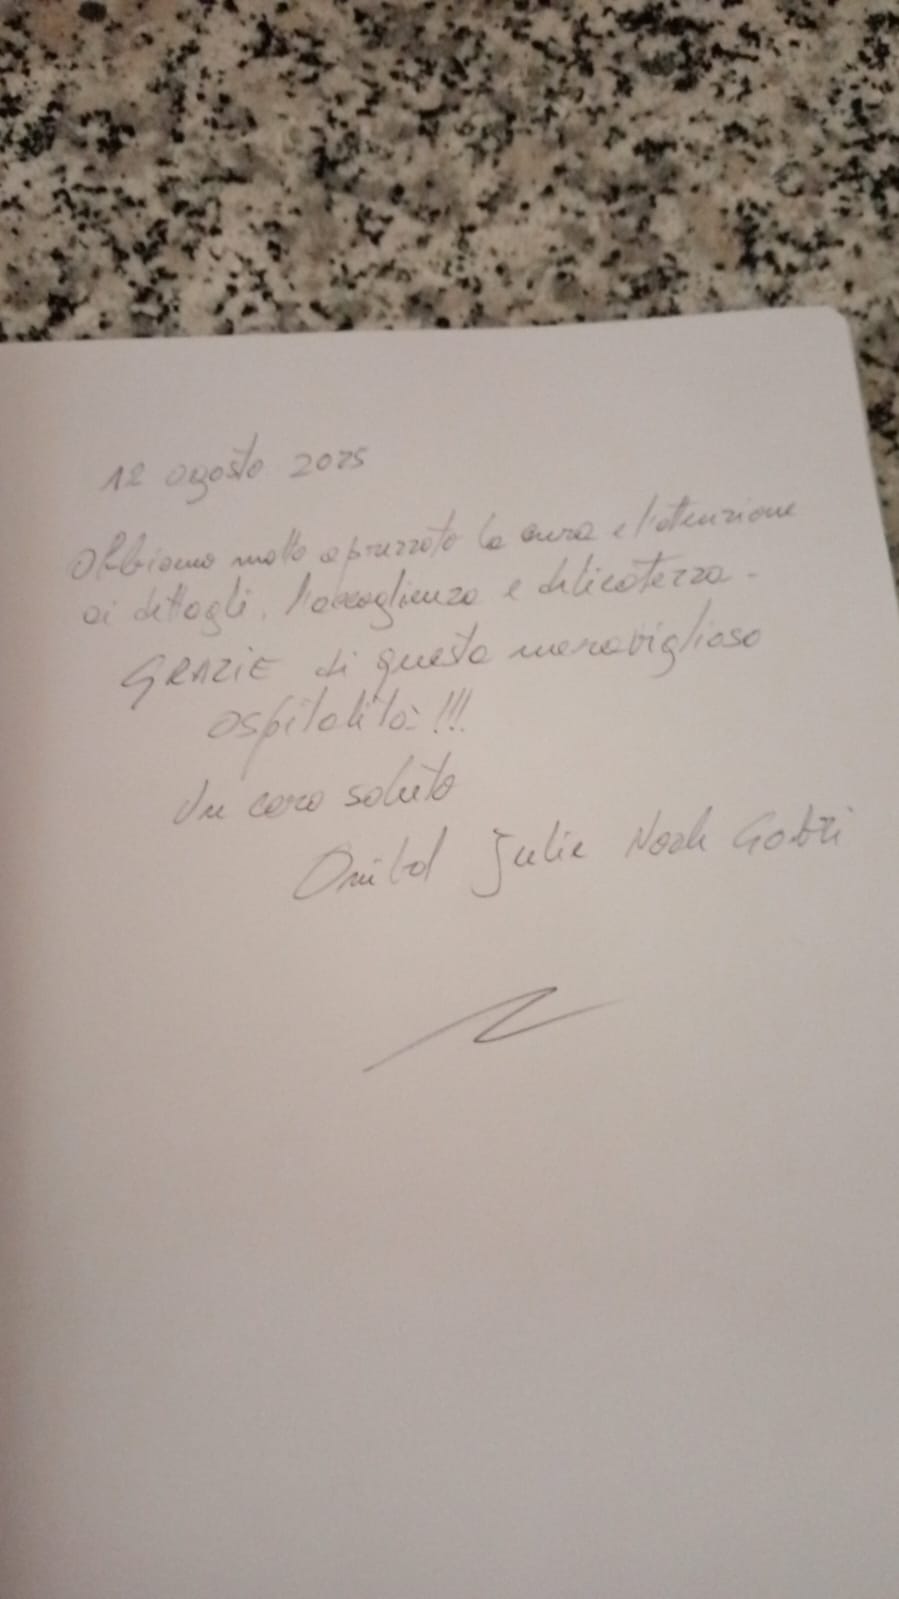 12 agosto 2025
Abbiamo molto apprezzato la cura e l'attenzione
ai dettagli, l'accoglienza e delicatezza.
GRAZIE di questa meravigliosa
ospitalità!!!
Un caro saluto
Julie